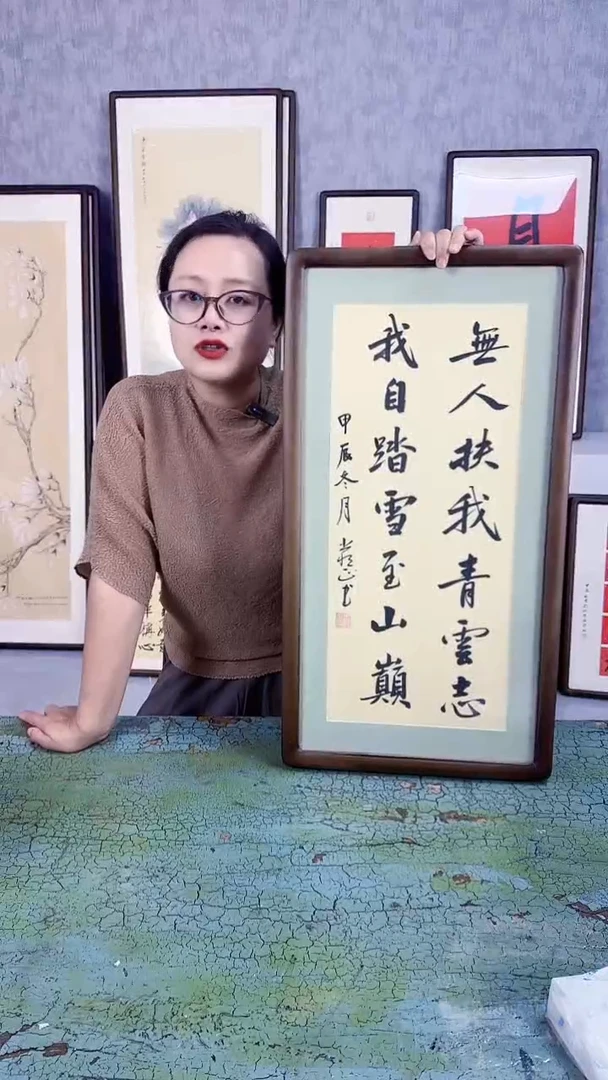 無人扶我青雲志
我自踏雪至山巔
甲辰冬月